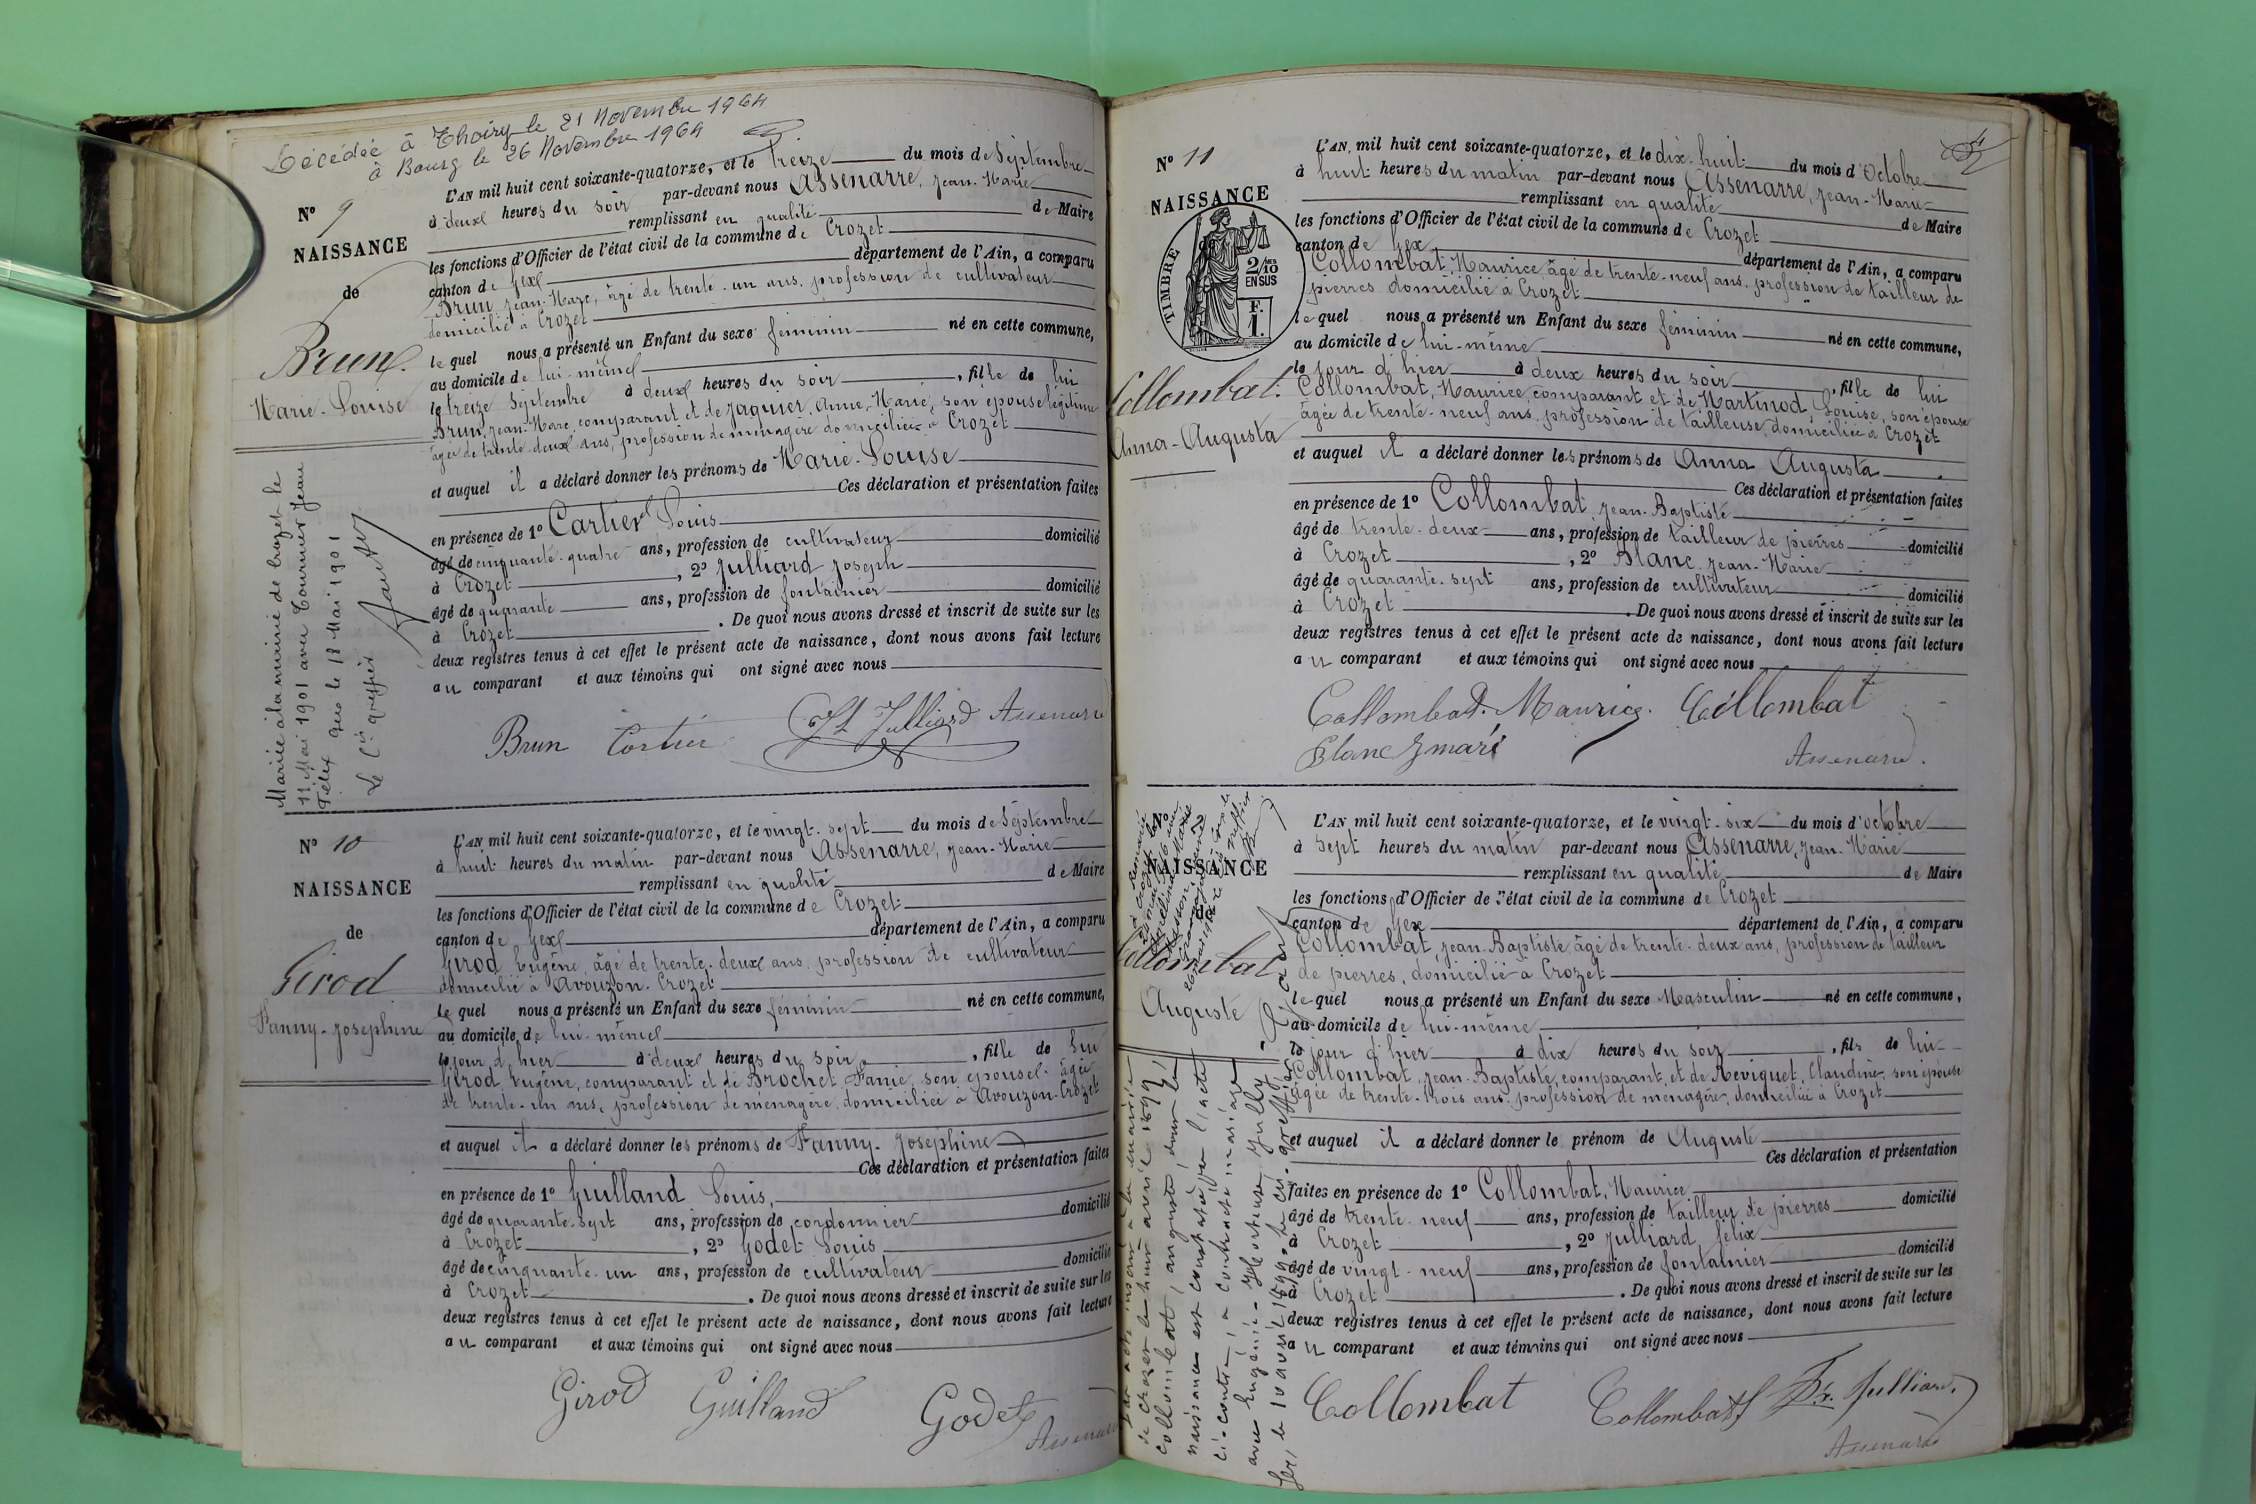 Décédée à Thoiry le 21 Novembre 1964
à Bourg le 26 Novembre 1964
N° 9
NAISSANCE
de
Brun
Marie-Louise
L'AN mil huit cent soixante-quatorze, et le treize du mois de Septembre
à deux heures du soir par-devant nous Assenarre, Jean-Marie
remplissant en qualité de Maire
les fonctions d'Officier de l'état civil de la commune de Crozet
canton de Gex département de l'Ain, a comparu
Brun Jean-Marc, âgé de trente-un ans, profession de cultivateur
domicilié à Crozet
lequel nous a présenté un Enfant du sexe féminin né en cette commune,
au domicile de lui-même
le treize Septembre à deux heures du soir, fille de lui
Brun, Jean-Marc, comparant et de Jaquier, Anne-Marie, son épouse légitime
âgée de trente-deux ans, profession de ménagère domiciliée à Crozet
et auquel il a déclaré donner les prénoms de Marie-Louise
Ces déclaration et présentation faites
en présence de 1° Cartier Louis
âgé de cinquante-quatre ans, profession de cultivateur domicilié
à Crozet, 2° Julliard Joseph
âgé de quarante ans, profession de fontainier domicilié
à Crozet. De quoi nous avons dressé et inscrit de suite sur les
deux registres tenus à cet effet le présent acte de naissance, dont nous avons fait lecture
au comparant et aux témoins qui ont signé avec nous
Brun Cartier Jh Julliard Assenarre
Mariée à la mairie de Crozet le
11 Mai 1901 avec Tournier Jean
Félix Gex le 18 Mai 1901
Le Cis greffier
N° 10
NAISSANCE
de
Girod
Fanny-Joséphine
L'AN mil huit cent soixante-quatorze, et le vingt-sept du mois de Septembre
à huit heures du matin par-devant nous Assenarre, Jean-Marie
remplissant en qualité de Maire
les fonctions d'Officier de l'état civil de la commune de Crozet
canton de Gex département de l'Ain, a comparu
Girod Eugène, âgé de trente-deux ans, profession de cultivateur
domicilié à Avouzon-Crozet
lequel nous a présenté un Enfant du sexe féminin né en cette commune,
au domicile de lui-même
le jour d'hier à deux heures du soir, fille de lui
Girod, Eugène, comparant et de Brochet Fanie, son épouse, âgée
de trente-un ans, profession de ménagère, domiciliée à Avouzon-Crozet
et auquel il a déclaré donner les prénoms de Fanny-Joséphine
Ces déclaration et présentation faites
en présence de 1° Guilland Louis,
âgé de quarante-sept ans, profession de cordonnier domicilié
à Crozet, 2° Godet Louis
âgé de cinquante-un ans, profession de cultivateur domicilié
à Crozet. De quoi nous avons dressé et inscrit de suite sur les
deux registres tenus à cet effet le présent acte de naissance, dont nous avons fait lecture
au comparant et aux témoins qui ont signé avec nous
Girod Guilland Godet Assenarre
N° 11
NAISSANCE
de
TIMBRE
2/10 EN SUS
F. 1.
Collombat
Anna-Augusta
L'AN mil huit cent soixante-quatorze, et le dix-huit du mois d'Octobre
à huit heures du matin par-devant nous Assenarre, Jean-Marie
remplissant en qualité de Maire
les fonctions d'Officier de l'état civil de la commune de Crozet
canton de Gex département de l'Ain, a comparu
Collombat, Maurice, âgé de trente-neuf ans, profession de tailleur de
pierres domicilié à Crozet
lequel nous a présenté un Enfant du sexe féminin né en cette commune,
au domicile de lui-même
le jour d'hier à deux heures du soir, fille de lui
Collombat, Maurice, comparant et de Martinod Louise, son épouse
âgée de trente-neuf ans, profession de tailleuse, domiciliée à Crozet
et auquel il a déclaré donner les prénoms de Anna Augusta
Ces déclaration et présentation faites
en présence de 1° Collombat Jean-Baptiste
âgé de trente-deux ans, profession de tailleur de pierres domicilié
à Crozet, 2° Blanc Jean-Marie
âgé de quarante-sept ans, profession de cultivateur domicilié
à Crozet. De quoi nous avons dressé et inscrit de suite sur les
deux registres tenus à cet effet le présent acte de naissance, dont nous avons fait lecture
au comparant et aux témoins qui ont signé avec nous
Collombat Maurice Collombat
Blanc J mari Assenarre
N°
NAISSANCE
de
Collombat
Auguste
L'AN mil huit cent soixante-quatorze, et le vingt-six du mois d'Octobre
à sept heures du matin par-devant nous Assenarre, Jean-Marie
remplissant en qualité de Maire
les fonctions d'Officier de l'état civil de la commune de Crozet
canton de Gex département de l'Ain, a comparu
Collombat, Jean-Baptiste âgé de trente-deux ans, profession de tailleur
de pierres, domicilié à Crozet
lequel nous a présenté un Enfant du sexe Masculin né en cette commune,
au domicile de lui-même
le jour d'hier à dix heures du soir, fils de lui
Collombat, Jean-Baptiste, comparant, et de Reviguet, Claudine, son épouse
âgée de trente-trois ans, profession de ménagère, domiciliée à Crozet
et auquel il a déclaré donner le prénom de Auguste
Ces déclaration et présentation
faites en présence de 1° Collombat, Maurice
âgé de trente-neuf ans, profession de tailleur de pierres domicilié
à Crozet, 2° Julliard, félix
âgé de vingt-neuf ans, profession de fontainier domicilié
à Crozet. De quoi nous avons dressé et inscrit de suite sur les
deux registres tenus à cet effet le présent acte de naissance, dont nous avons fait lecture
au comparant et aux témoins qui ont signé avec nous
Collombat Collombat Fx. Julliard
Assenarre
Par acte inscrit à la mairie
de Crozet le huit avril 1899,
Collombat, auguste, dont la
naissance est constatée par l'acte
ci-contre, a contracté mariage
avec Eugénie
Gex, le 10 avril 1899. Le Cis greffier